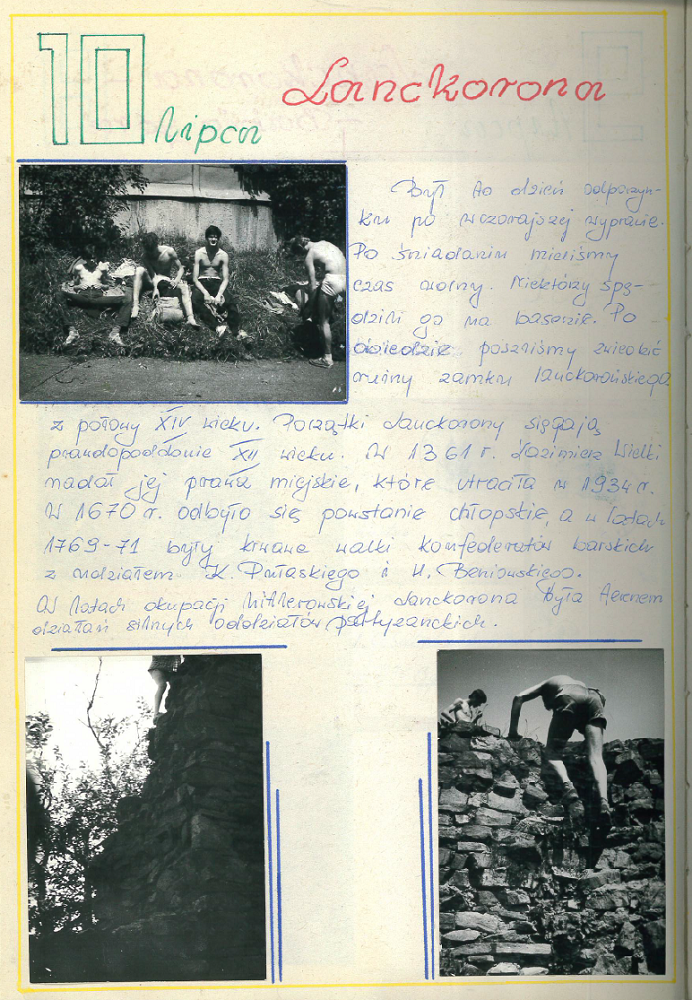 10 lipca
Lanckorona
Był to dzień odpoczyn-
ku po wczorajszej wyprawie.
Po śniadaniu mieliśmy
czas wolny. Niektórzy spę-
dzili go na basenie. Po
obiedzie poszliśmy zwiedzić
ruiny zamku lanckorońskiego
z połowy XIV wieku. Początki Lanckorony sięgają
prawdopodobnie XII wieku. W 1361 r. Kazimierz Wielki
nadał jej prawa miejskie, które utraciła w 1934 r.
W 1670 r. odbyło się powstanie chłopskie, a w latach
1769-71 były krwawe walki konfederatów barskich
z udziałem K. Pułaskiego i M. Beniowskiego.
W latach okupacji hitlerowskiej Lanckorona była terenem
działań silnych oddziałów partyzanckich.